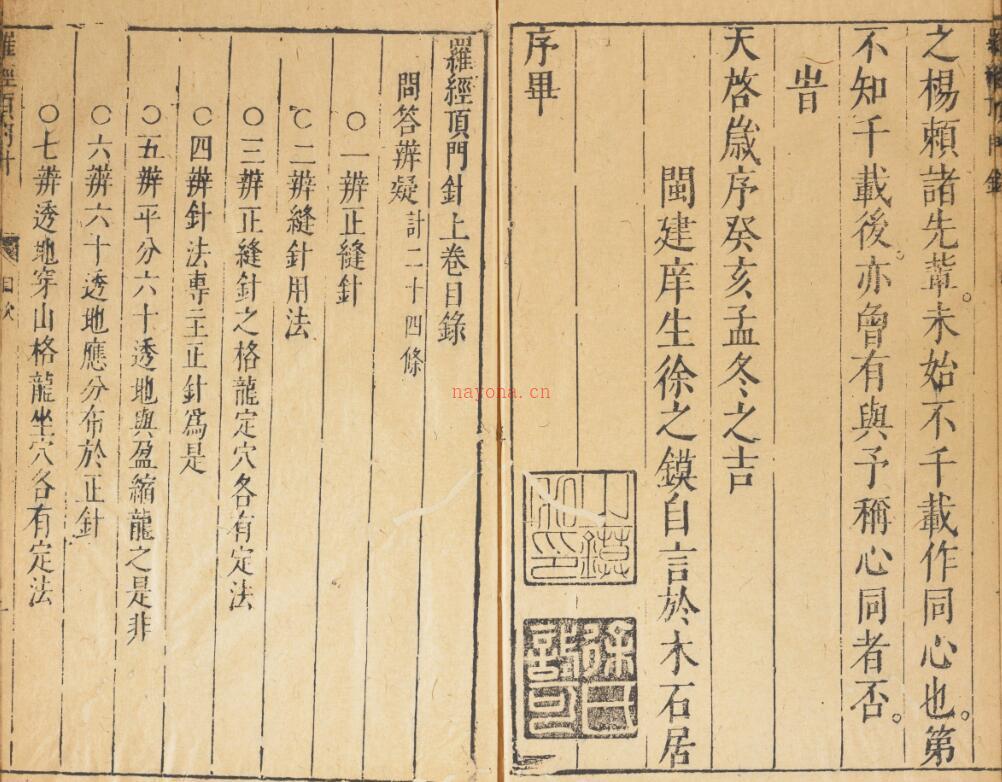 之楊賴諸先輩未始不千載作同心也。第
不知千載後。亦會有與予稱心同者否。
旹
天啓歲序癸亥孟冬之吉
閩建庠生徐之鏌自言於木石居
序畢
羅經頂門針上卷目錄
問答辨疑計二十四條
○一辨正縫針
○二辨縫針用法
○三辨正縫針之格龍定穴各有定法
○四辨針法專主正針爲是
○五辨平分六十透地與盈縮龍之是非
○六辨六十透地應分布於正針
○七辨透地穿山格龍坐穴各有定法
羅經頂門針
目次
nayona.cn